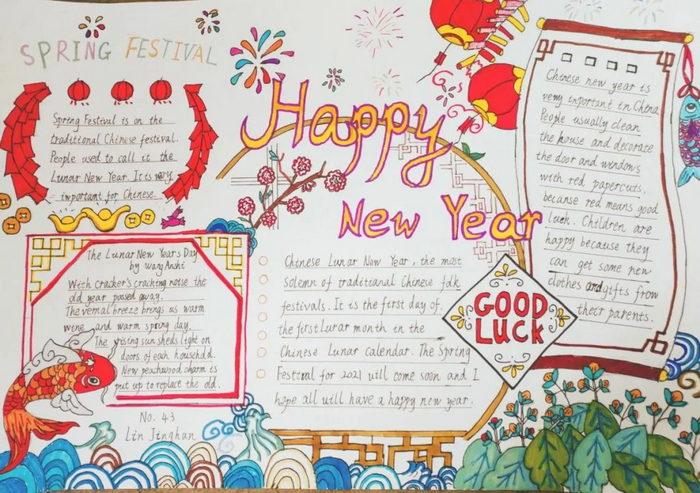 SPRING FESTIVAL
Spring Festival is on the
traditional Chinese festival.
People used to call it the
Lunar New Year. It is very
important for Chinese.
The Lunar New Year's Day
by Wang Anshi
With cracker's cracking noise the
old year passed away.
The vernal breeze brings us warm
wine and warm spring day.
The rising sun sheds light on
doors of eah househld.
New peachwood charm is
put up to replace the old.
No. 43
Lin Jinghan
Happy
New Year
Chinese Lunar New Year, the most
solemn of traditional Chinese folk
festivals. It is the first day of
the first lunar month in the
Chinese Lunar calendar. The Spring
Festival for 2021 will come soon and I
hope all will have a happy new year.
GOOD
LUCK
Chinese new year is
very important in China
People usually clean
the house and decorate
the door and windows
with red papercuts,
because red means good
luck. Children are
happy because they
can get some new
clothes and gifts from
their parents.